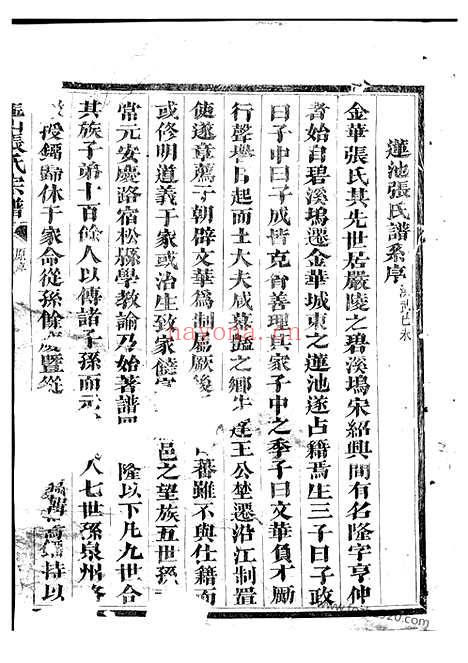 蓮池張氏譜系序
金華張氏其先世居嚴陵之碧溪塢宋紹興間有名隆字亨仲
者始自碧溪塢遷金華城東之蓮池遂占籍焉生三子曰子政
曰子中曰子成皆克育善理其家子中之季子曰文華負才勵
行聲譽日起而士大夫咸慕豔之鄉先達王公埜遷沿江制置
使遂章薦于朝辟文華為制屬厥後 蕃雖不與仕籍而
或修明道義于家或治生致家饒 邑之望族五世孫
當元安慶路宿松縣學教諭乃始著譜 隆以下凡九世合
其族子弟十百餘人以傳諸子孫而元 八七世孫泉州
授歸休于家命從孫餘 暨從 持以
張氏宗譜
原序
nayona.cn